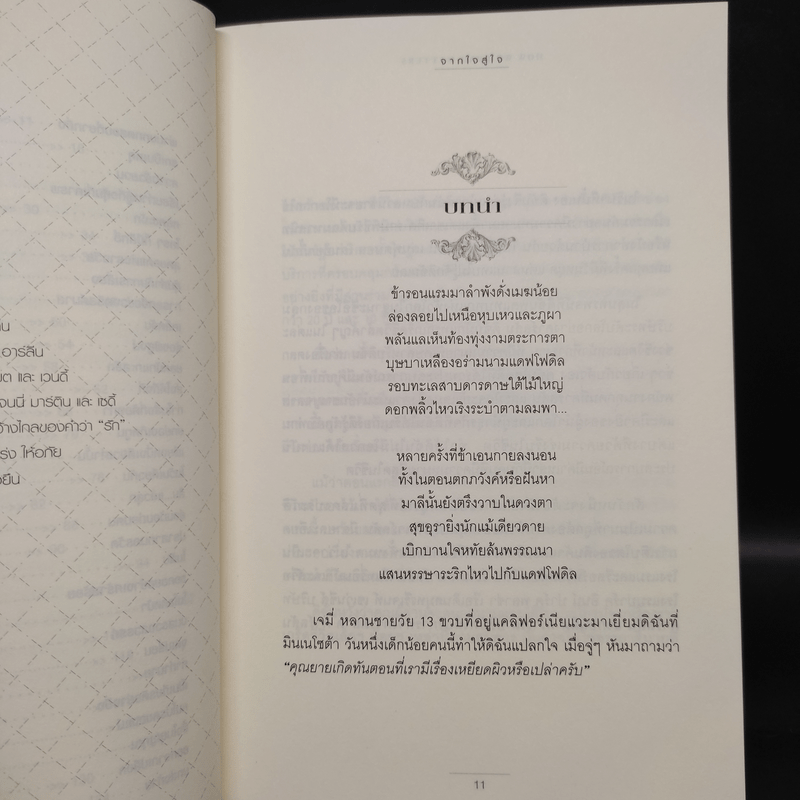 ถิ่น
อาร์ลีน
และ เวนดี้
เจนนี่ มาร์ติน และ เซดี้
ว้างไกลของคำว่า “รัก”
ให้อภัย
จากใจสู่ใจ
บทนำ
ข้ารอนแรมมาลำพังดั่งเมฆน้อย
ล่องลอยไปเหนือหุบเหวและภูผา
พลันแลเห็นท้องทุ่งงามตระการตา
บุษบาเหลืองอร่ามนามแดฟโฟดิล
รอบทะเลสาบดารดาษใต้ไม้ใหญ่
ดอกพลิ้วไหวเริงระบำตามลมพา...
หลายครั้งที่ข้าเอนกายลงนอน
ทั้งในตอนตกภวังค์หรือฝันหา
มาลีนั้นยังตรึงวาบในดวงตา
สุขอุรายิ่งนักแม้เดียวดาย
เบิกบานใจหทัยล้นพรรณนา
แสนหรรษาระริกไหวไปกับแดฟโฟดิล
เจมี่ หลานชายวัย 13 ขวบที่อยู่แคลิฟอร์เนียแวะมาเยี่ยมดิฉันที่
มินเนโซต้า วันหนึ่งเด็กน้อยคนนี้ทำให้ดิฉันแปลกใจ เมื่อจู่ๆ หันมาถามว่า
“คุณยายเกิดทันตอนที่เรามีเรื่องเหยียดผิวหรือเปล่าครับ”
11